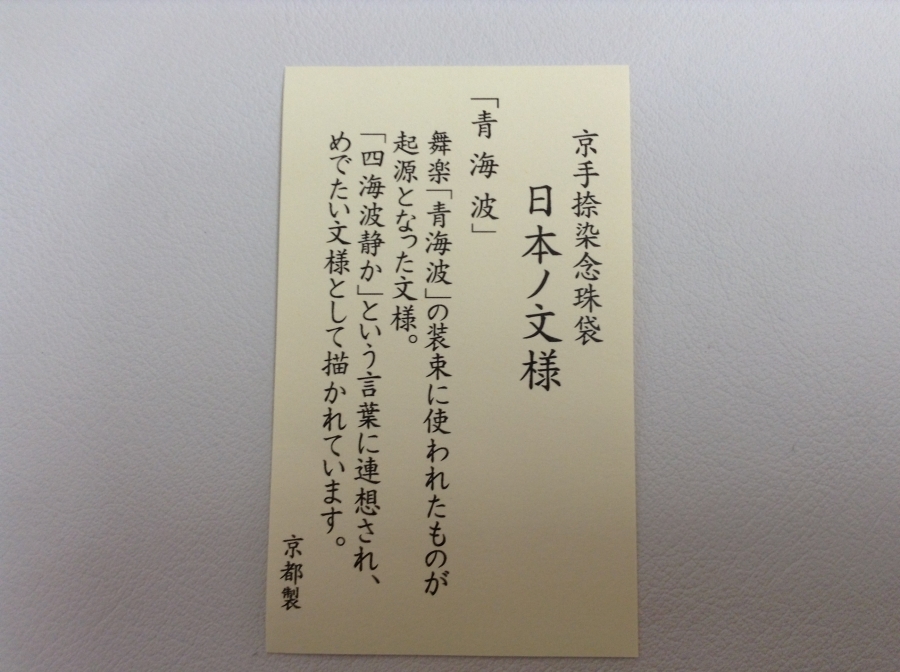 京手捺染念珠袋
日本ノ文様
「青海波」
舞楽「青海波」の装束に使われたものが
起源となった文様。
「四海波静か」という言葉に連想され、
めでたい文様として描かれています。
京都製